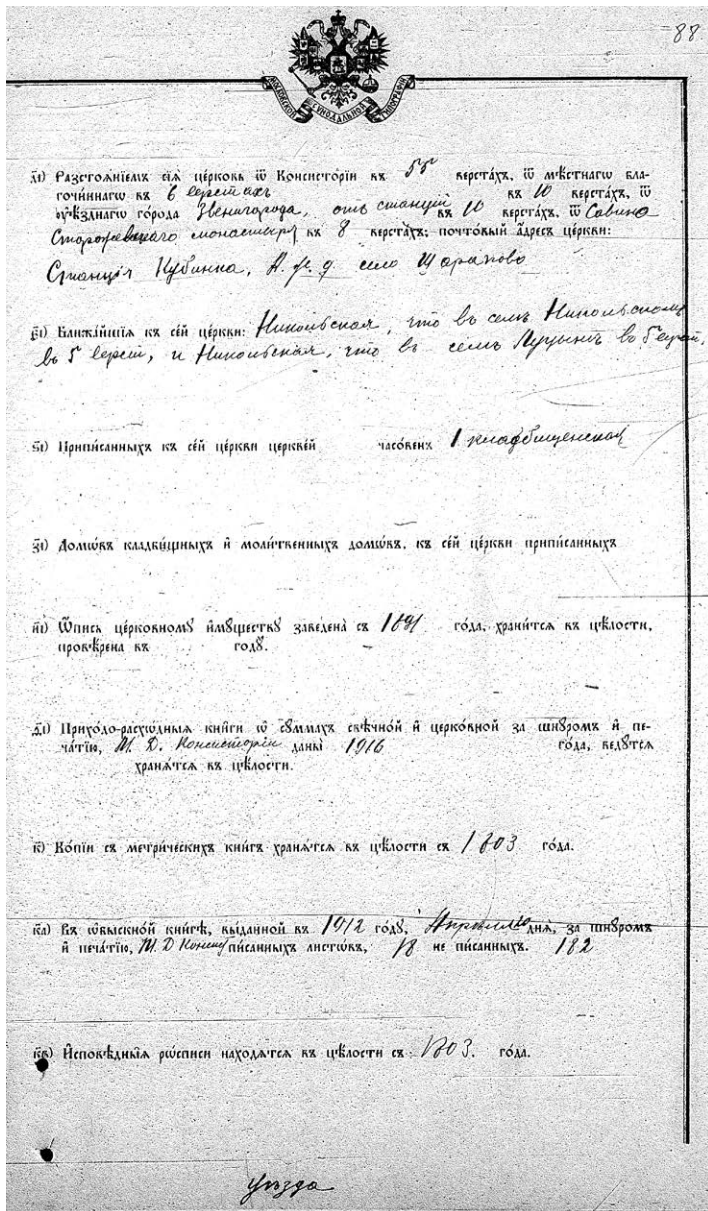 88
МОСКОВСКОЙ СѴНОДАЛЬНОЙ ТѴПОГРАФІИ
д҃і) Разстоѧ́ніемъ сїѧ̀ це́рковь ѿ Консисто́рїи въ 55 верста́хъ, ѿ мѣ́стнагѡ бла-
гочи́ннагѡ въ 6 верстахъ въ 10 верста́хъ, ѿ
ᲂу҆ѣ́зднагѡ го́рода Звенигорода, отъ станціи въ 10 верста́хъ, ѿ Савино
Сторожевскаго монастыря въ 8 верста́хъ; почто́вый а҆́дресъ це́ркви:
Станція Кубинка, А. ж. д. село Шарапово
є҃і) Ближа́йшїѧ къ се́й це́ркви: Никольская, что въ селѣ Никольскомъ
въ 5 верст, и Никольская, что въ селѣ Луцынѣ въ 6 верст.
ѕ҃і) Припи́санныхъ къ се́й це́ркви церкве́й часо́венъ 1 кладбищенская
з҃і) Домѡ́въ кладби́щныхъ и҆ моли́твенныхъ домѡ́въ, къ се́й це́ркви припи́санныхъ
и҃і) Ѻ҆́пись церко́вномꙋ и҆мꙋ́ществꙋ заведена̀ съ 1891 го́да, храни́тсѧ въ цѣ́лости,
провѣ́рена въ годꙋ̀.
ѳ҃і) Прихо́до-расхо́дныѧ кни́ги ѡ҆ сꙋ́ммахъ свѣчно́й и҆ церко́вной за шнꙋро́мъ и҆ пе-
ча́тїю, М. Д. Консисторіи даны̀ 1916 го́да, ведꙋ́тсѧ
хранѧ́тсѧ въ цѣ́лости.
к҃) Ко́пїи съ метри́ческихъ кни́гъ хранѧ́тсѧ въ цѣ́лости съ 1803 го́да.
к҃а) Въ ѡ҆быскно́й кни́гѣ, вы́данной въ 1912 годꙋ̀, днѧ̀, за шнꙋро́мъ
и҆ печа́тїю, М. Д Консис пи́санныхъ листѡ́въ, 18 не пи́санныхъ. 182
к҃в) И҆сповѣ́дныѧ рѡ́списи нахо́дѧтсѧ въ цѣ́лости съ 1803. го́да.
уѣзда